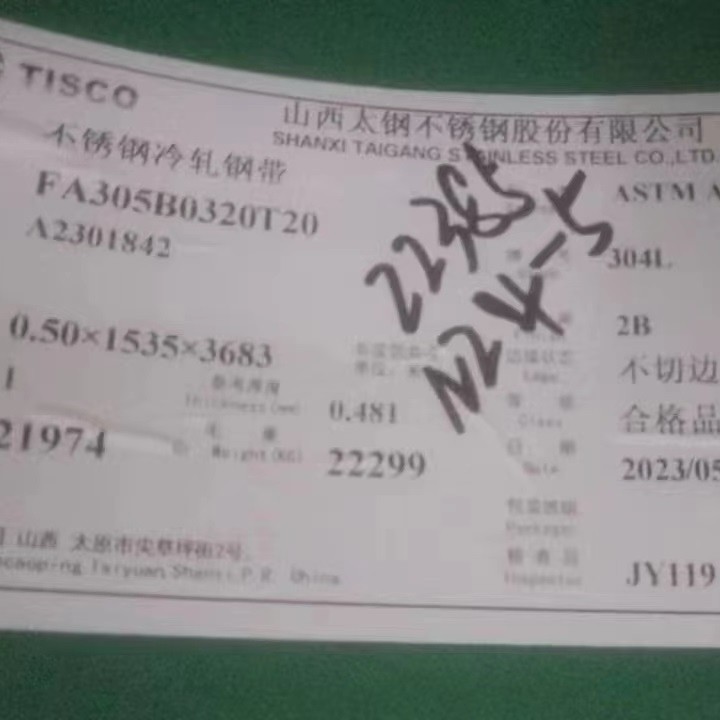 TISCO
山西太钢不锈钢股份有限公司
SHANXI TAIGANG STAINLESS STEEL CO.,LTD.
不锈钢冷轧钢带
FA305B0320T20
ASTM A
A2301842
22385
304L
N24-5
2B
0.50×1535×3683
边缘状态
不切边
1
参考厚度
Thickness(mm)
0.481
等 级
Class
合格品
21974
毛 重
Weight(KG)
22299
日 期
Date
2023/05
包装班组
Package
山西 太原市尖草坪街2号
caoping Taiyuan Shanxi P.R. China
检查员
Inspector
JY119